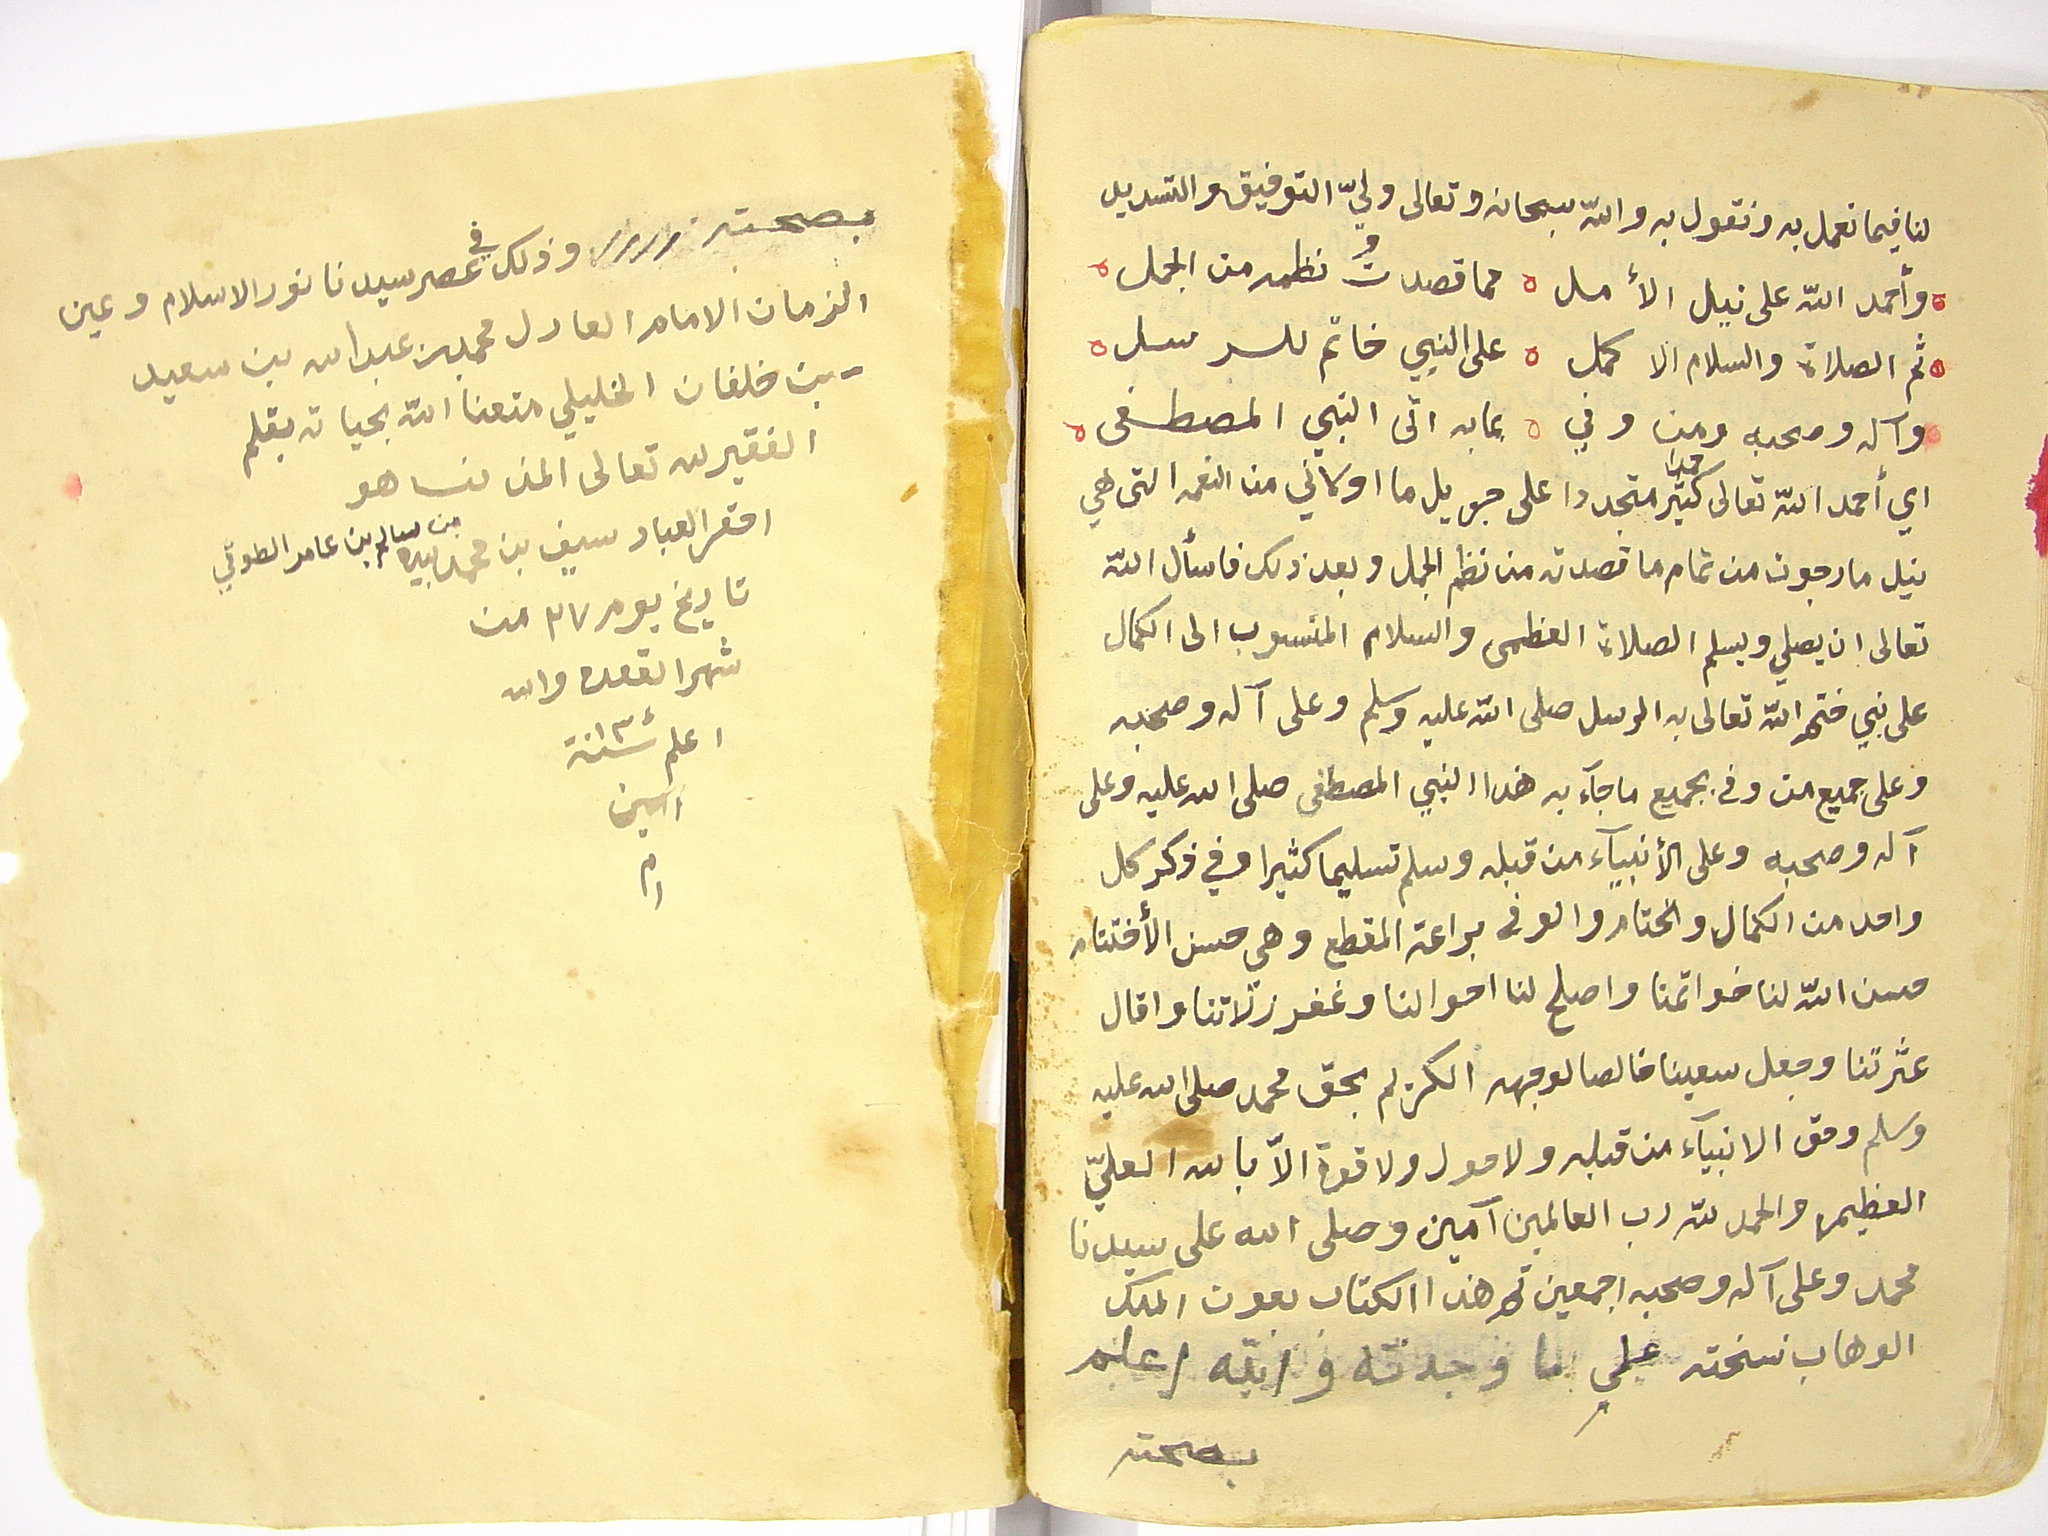 لنا فيما نعمل به ونقول به والله سبحانه وتعالى وليّ التوفيق والتسديد
وأحمد الله على نيل الأمل ه مما قصدت نظمه من الجمل ه
ثم الصلاة والسلام الاكمل ه على النبي خاتم للرسل ه
وآله وصحبه ومن وفي ه بما به اتى النبي المصطفى ه
اي أحمد الله تعالى حمدا كثيرا متجددا على جزيل ما اولاني من النعم التي هي
نيل ما رجوت من تمام ما قصدته من نظم الجمل وبعد ذلك فاسأل الله
تعالى ان يصلي ويسلم الصلاة العظمى والسلام المنسوب الى الكمال
على نبي ختم الله تعالى به الرسل صلى الله عليه وسلم وعلى آله وصحبه
وعلى جميع من وفى بجميع ما جآء به هذا النبي المصطفى صلى الله عليه وعلى
آله وصحبه وعلى الأنبيآء من قبله وسلم تسليما كثيرا وفي ذكر كل
واحد من الكمال والختام والوفى براعة المقطع وهي حسن الأختتام
حسن الله لنا خواتمنا واصلح لنا احوالنا وغفر زلاتنا واقال
عثرتنا وجعل سعينا خالصا لوجهه الكريم بحق محمد صلى الله عليه
وسلم وحق الانبيآء من قبله ولا حول ولا قوة الاّ بالله العليّ
العظيم والحمد لله رب العالمين آمين وصلى الله على سيدنا
محمد وعلى آله وصحبه اجمعين تم هذا الكتاب بعون الملك
الوهاب نسخته على ما وجدته والله اعلم
بصحته
بصحته وذلك في عصر سيدنا نور الاسلام وعين
الزمان الامام العادل محمد بن عبدالله بن سعيد
بن خلفان الخليلي متعنا الله بحياته بقلم
الفقير لله تعالى
احقر العباد سيف بن محمد بن سالم بن عامر الطوقي
تاريخ يوم ٢٧ من
شهر القعده والله
اعلم سنة
آمين